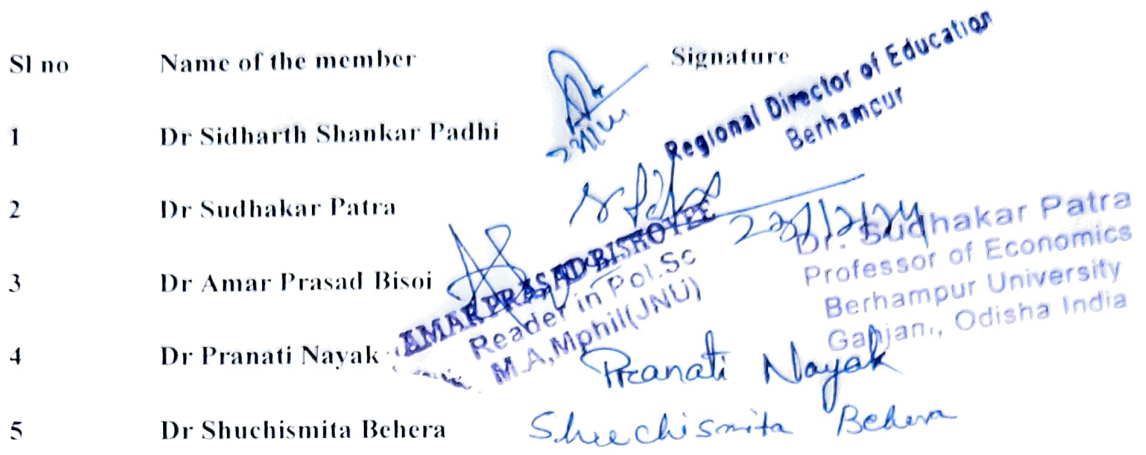 Sl no Name of the member Signature
1 Dr Sidharth Shankar Padhi
Regional Director of Education
Berhampur
2 Dr Sudhakar Patra
Dr. Sudhakar Patra
Professor of Economics
Berhampur University
Ganjam,, Odisha India
3 Dr Amar Prasad Bisoi
AMAR PRASAD BISHOYEE
Reader in Pol.Sc
M.A,Mphil(JNU)
4 Dr Pranati Nayak Pranati Nayak
5 Dr Shuchismita Behera Shuchismita Behera